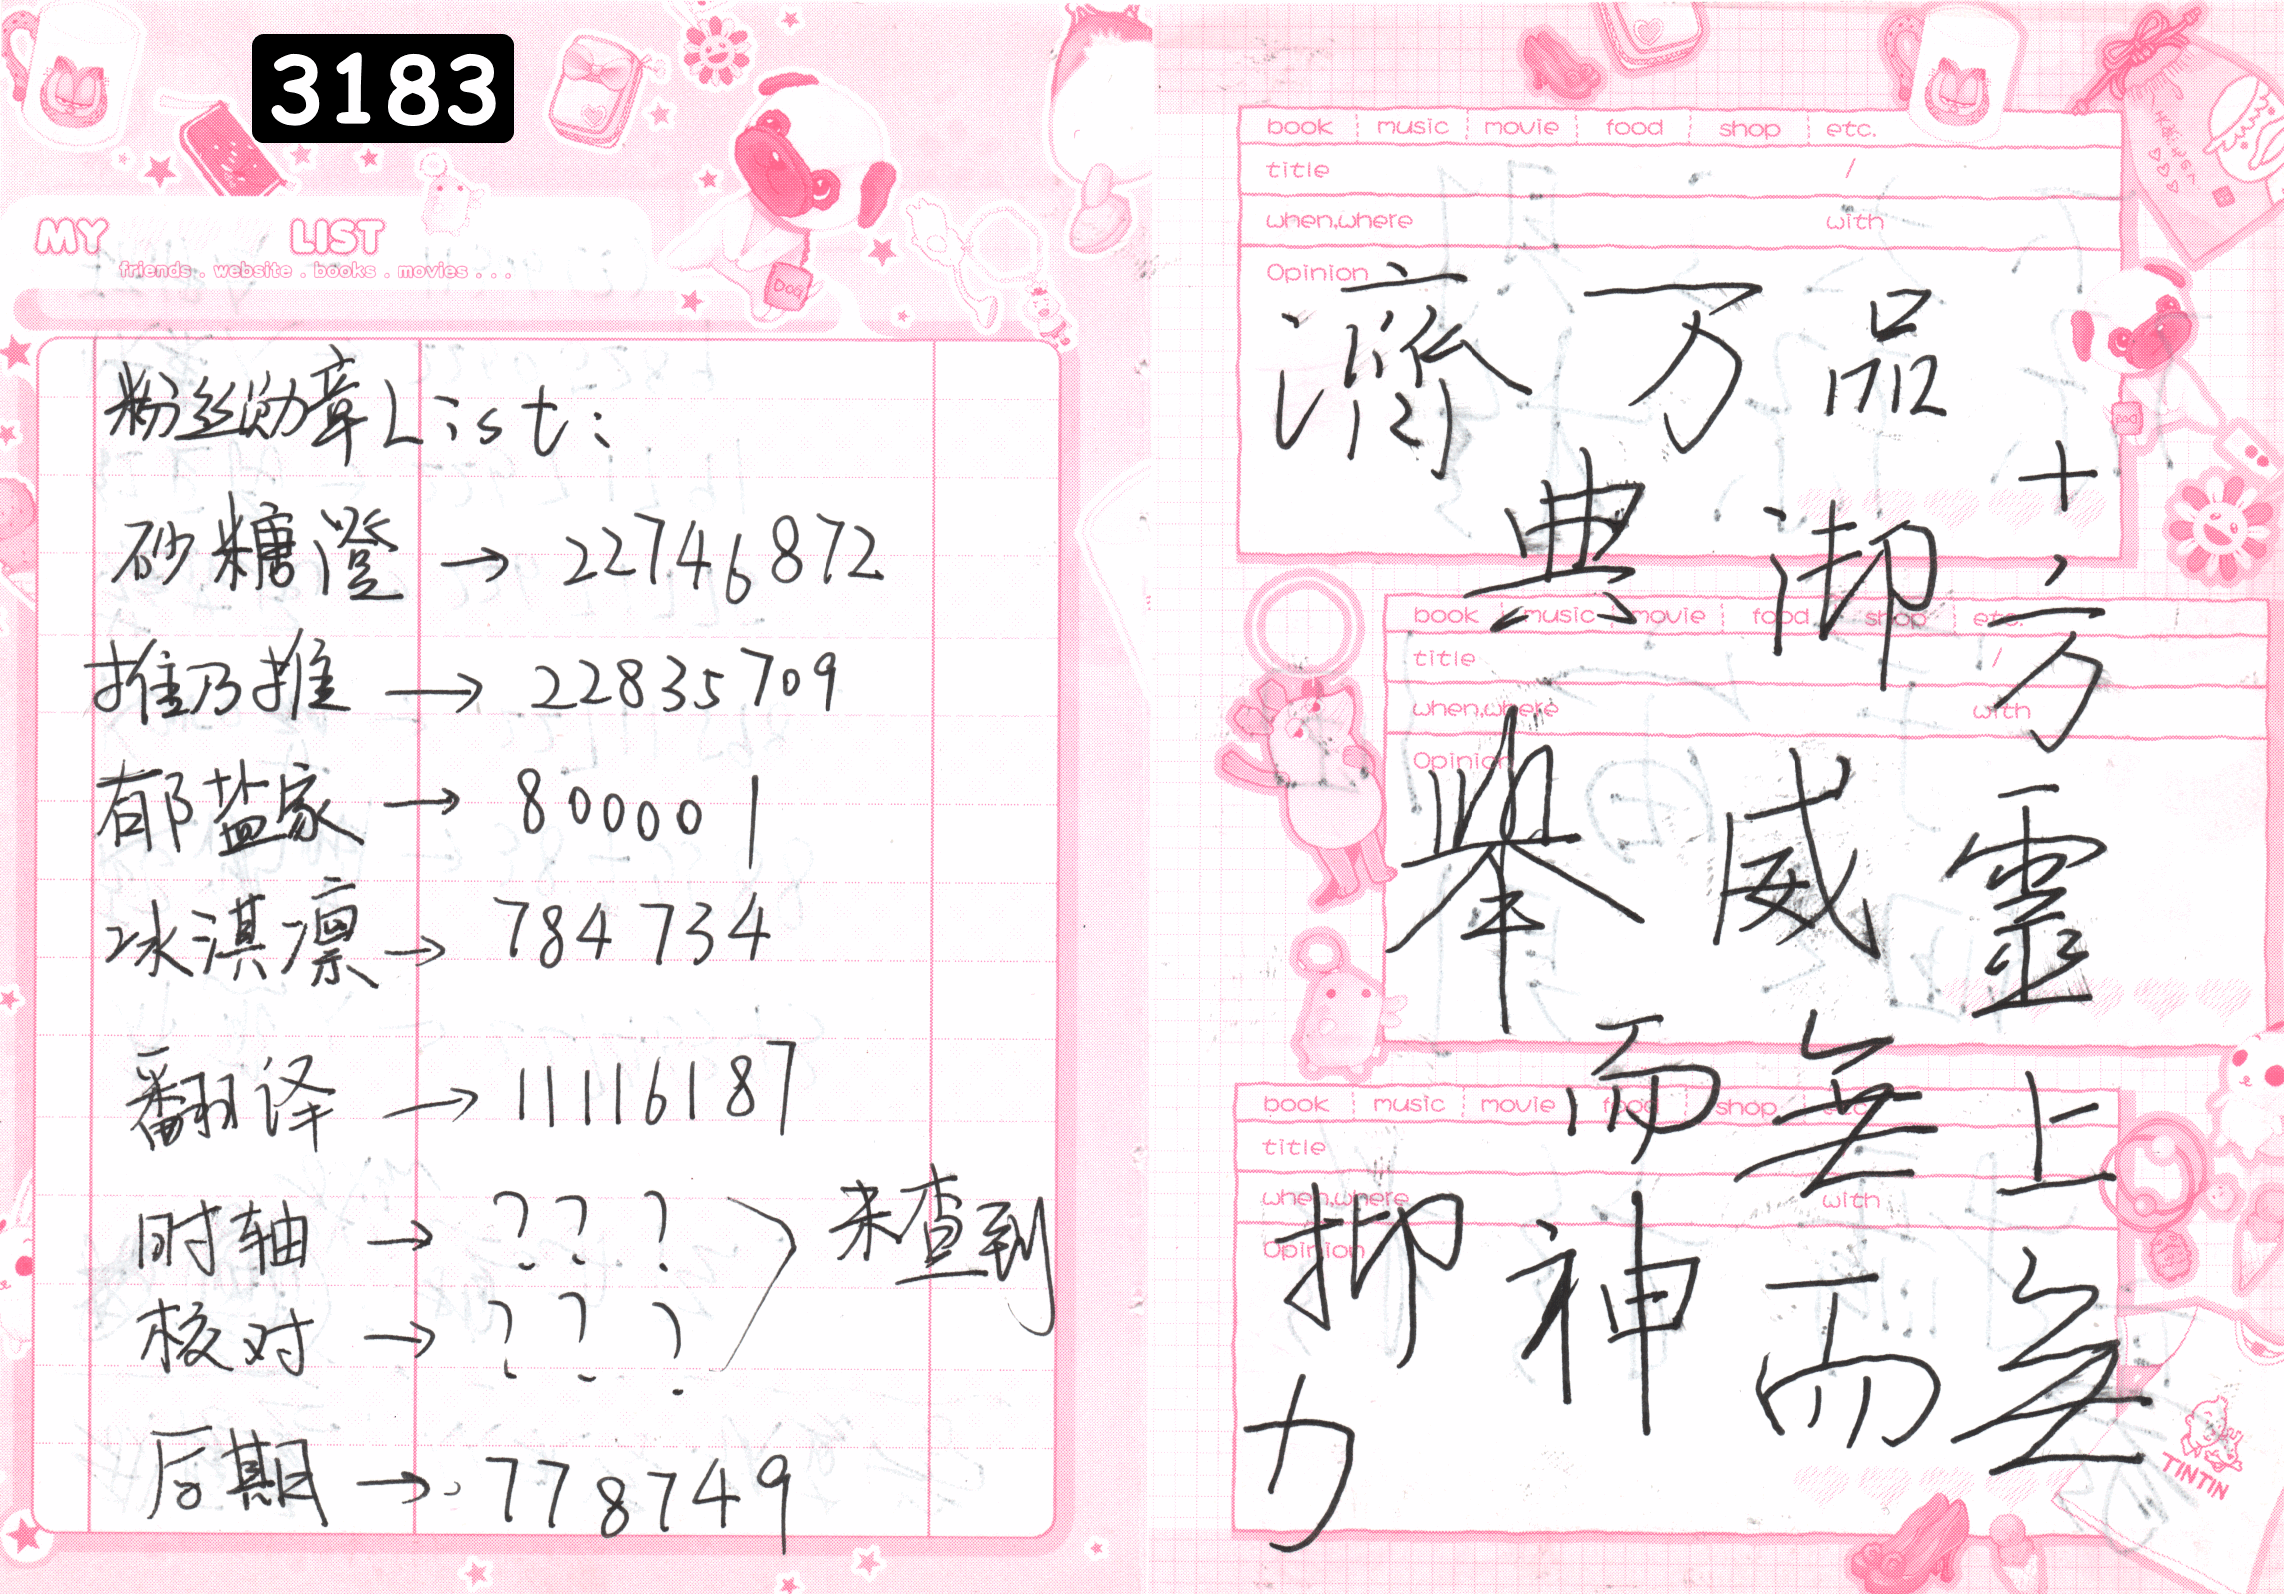 3183
MY LIST
friends . website . books . movies . . .
DOG
粉丝勋章List:
砂糖澄 → 22746872
推乃推 → 22835709
郁盐家 → 800001
冰淇凛 → 784734
翻译 → 11116187
时轴 → ??? 未查到
核对 → ???
后期 → 778749
book music movie food shop etc.
title /
when,where with
Opinion
濟万品
典御十,方
book music movie food shop etc.
title /
when,where with
Opinion
舉威靈
而無上
book music movie food shop etc.
title
when,where with
Opinion
抑神而無
力
TINTIN